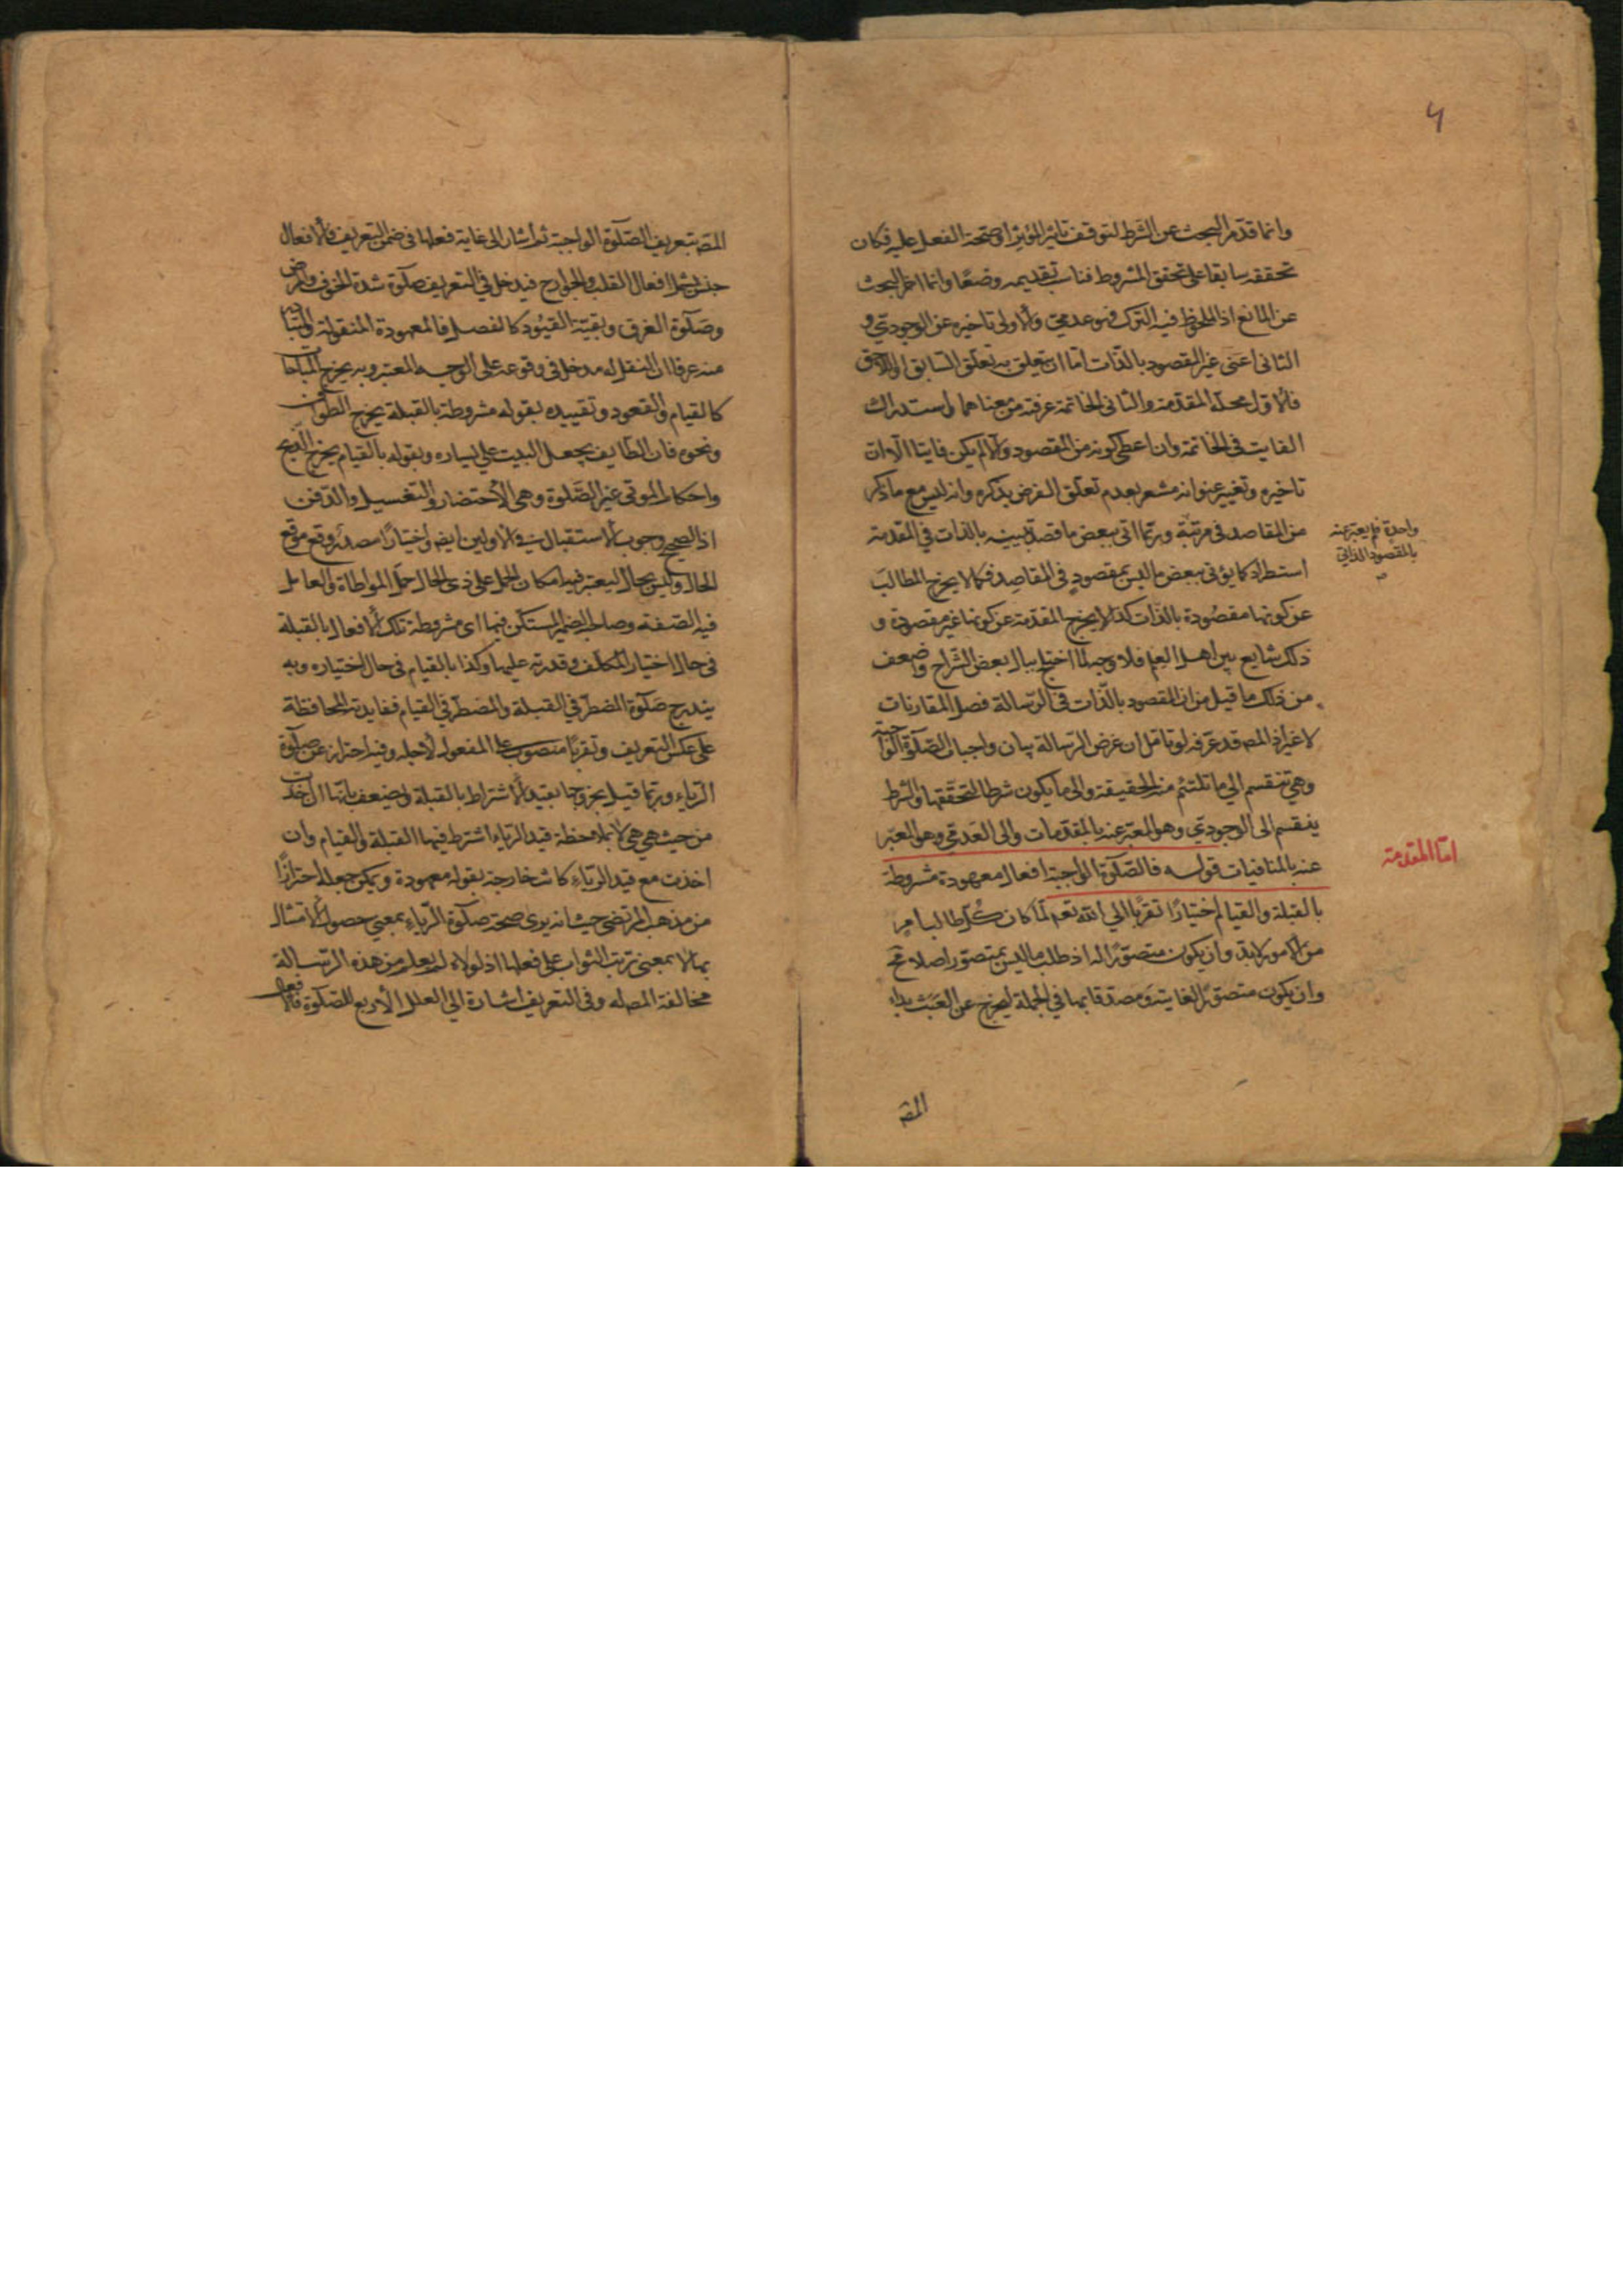 ٦
وانما قدم البحث عن الشرط لتوقف تاثير المؤثر او صحة الفعل عليه فكان
تحققه سابقا على تحقق المشروط فناسب تقديمه وضعًا وانما اخر البحث
عن المانع اذ الملحوظ فيه الترك فهو عدمي والاولى تاخيره عن الوجودي و
الثانى اعنى غير المقصود بالذات اما ان يتعلق به تعلق السابق او اللاحق
فالاول محله المقدمة والثانى الخاتمة عرفته من معناهما واستدراك
الفايت فى الخاتمة وان اعطى كونه من المقصود والا لم يكن فايتا الا ان
تاخيره وتغيير عنوانه مشعر بعدم تعلق الغرض بذكره وانه ليس مع ما ذكر
من المقاصد فى مرتبة وربما اتى ببعض ما قصد تبيينه بالذات في المقدمة
واحدة فلم يعبر عنه
بالمقصود الذاتى
استطرادا كما يؤتى ببعض ما ليس بمقصود فى المقاصد فكما لا يخرج المطالب
عن كونها مقصُودة بالذات كذا لا يخرج المقدمة عن كونها غير مقصودة و
ذلك شايع بين اهل العلم فلا وجه لما اختلج ببال بعض الشراح واضعف
من ذلك ما قيل من ان المقصود بالذات فى الرسالة فصل المقارنات
لا غير اذ المص قد عرفه لو تامل ان غرض الرسالة بيان واجبات الصّلوة الواجبة
وهي تنقسم الي ما تلتئم منه الحقيقة والى ما يكون شرطا لتحققها والشرط
ينقسم الى الوجودي وهو المعبر عنه بالمقدمات والى العدمي وهو المعبّر
اما المقدمة
عنه بالمنافيات قوله فالصّلوة الواجبة افعال معهودة مشروطة
بالقبلة والقيام اختيارًا تقربًا الي الله تعه لمّا كان كُل طالب امرٍ
من الامور لابد وان يكون متصوّرًا له اذ طلب ما ليس بمتصور اصلا مح
وان يكون متصورًا لغايته ومصدقا بها في الجملة ليخرج عن العبث بدا
المصه
المصه بتعريف الصّلوة الواجبة ثم اشار الى غاية فعلها فى ضمن التعريف فالافعال
جنس يشمل افعال القلب والجوارح فيدخل في التعريف صلوة شدة الخوف والمرض
وصلوة الغرق وبقيّة القيُود كالفصل فالمعهودة المنقولة
منه عرفا ان النقل له مدخل فى وقوعه على الوجه المعتبر وبه يخرج المباحات
كالقيام والقعود وتقييده بقوله مشروطة بالقبلة يخرج الطواف
ونحوه فان الطايف يجعل البيت علي يساره وبقوله بالقيام يخرج الذبح
واحكام الموتى غير الصَّلوة وهى الاحتضار والتغسيل والدّفن
اذ الصحيح وجوب الاستقبال فى الاولين ايضه واختيارًا مصدر وقع موقع
الحال وليس بحال ليعتبر فيه امكان الحمل على ذى الحال حمل المواطاة والعامل
فيه الصّفة وصاحبه الضمير المستكن فيها اى مشروطة تلك الافعال بالقبلة
فى حال اختيار المكلف وقدرته عليها وكذا بالقيام فى حال اختياره وبه
يندرج صلوة المضطر في القبلة والمضطر في القيام ففايدته المحافظة
على عكس التعريف وتقربًا منصوب على المفعول لاجله وفيه احتراز عن صلوة
الرّياء وربما قيل بخروجها بقيد الاشتراط بالقبلة وضعف بانها ان اخذت
من حيث هي هي لا بملاحظة قيد الرّياء اشترط فيها القبلة والقيام وان
اخذت مع قيد الرياء كانت خارجة بقوله معهودة ويمكن جعله احترازًا
من مذهب المرتضى حيث انه يرى صحة صلوة الرّياء بمعني حصول الامتثال
بها لا بمعنى ترتب الثواب على فعلها اذ لولاه لم يعلم من هذه الرسالة
مخالفة المص له وفى التعريف اشارة الي العلل الأربع للصّلوة فالافعال